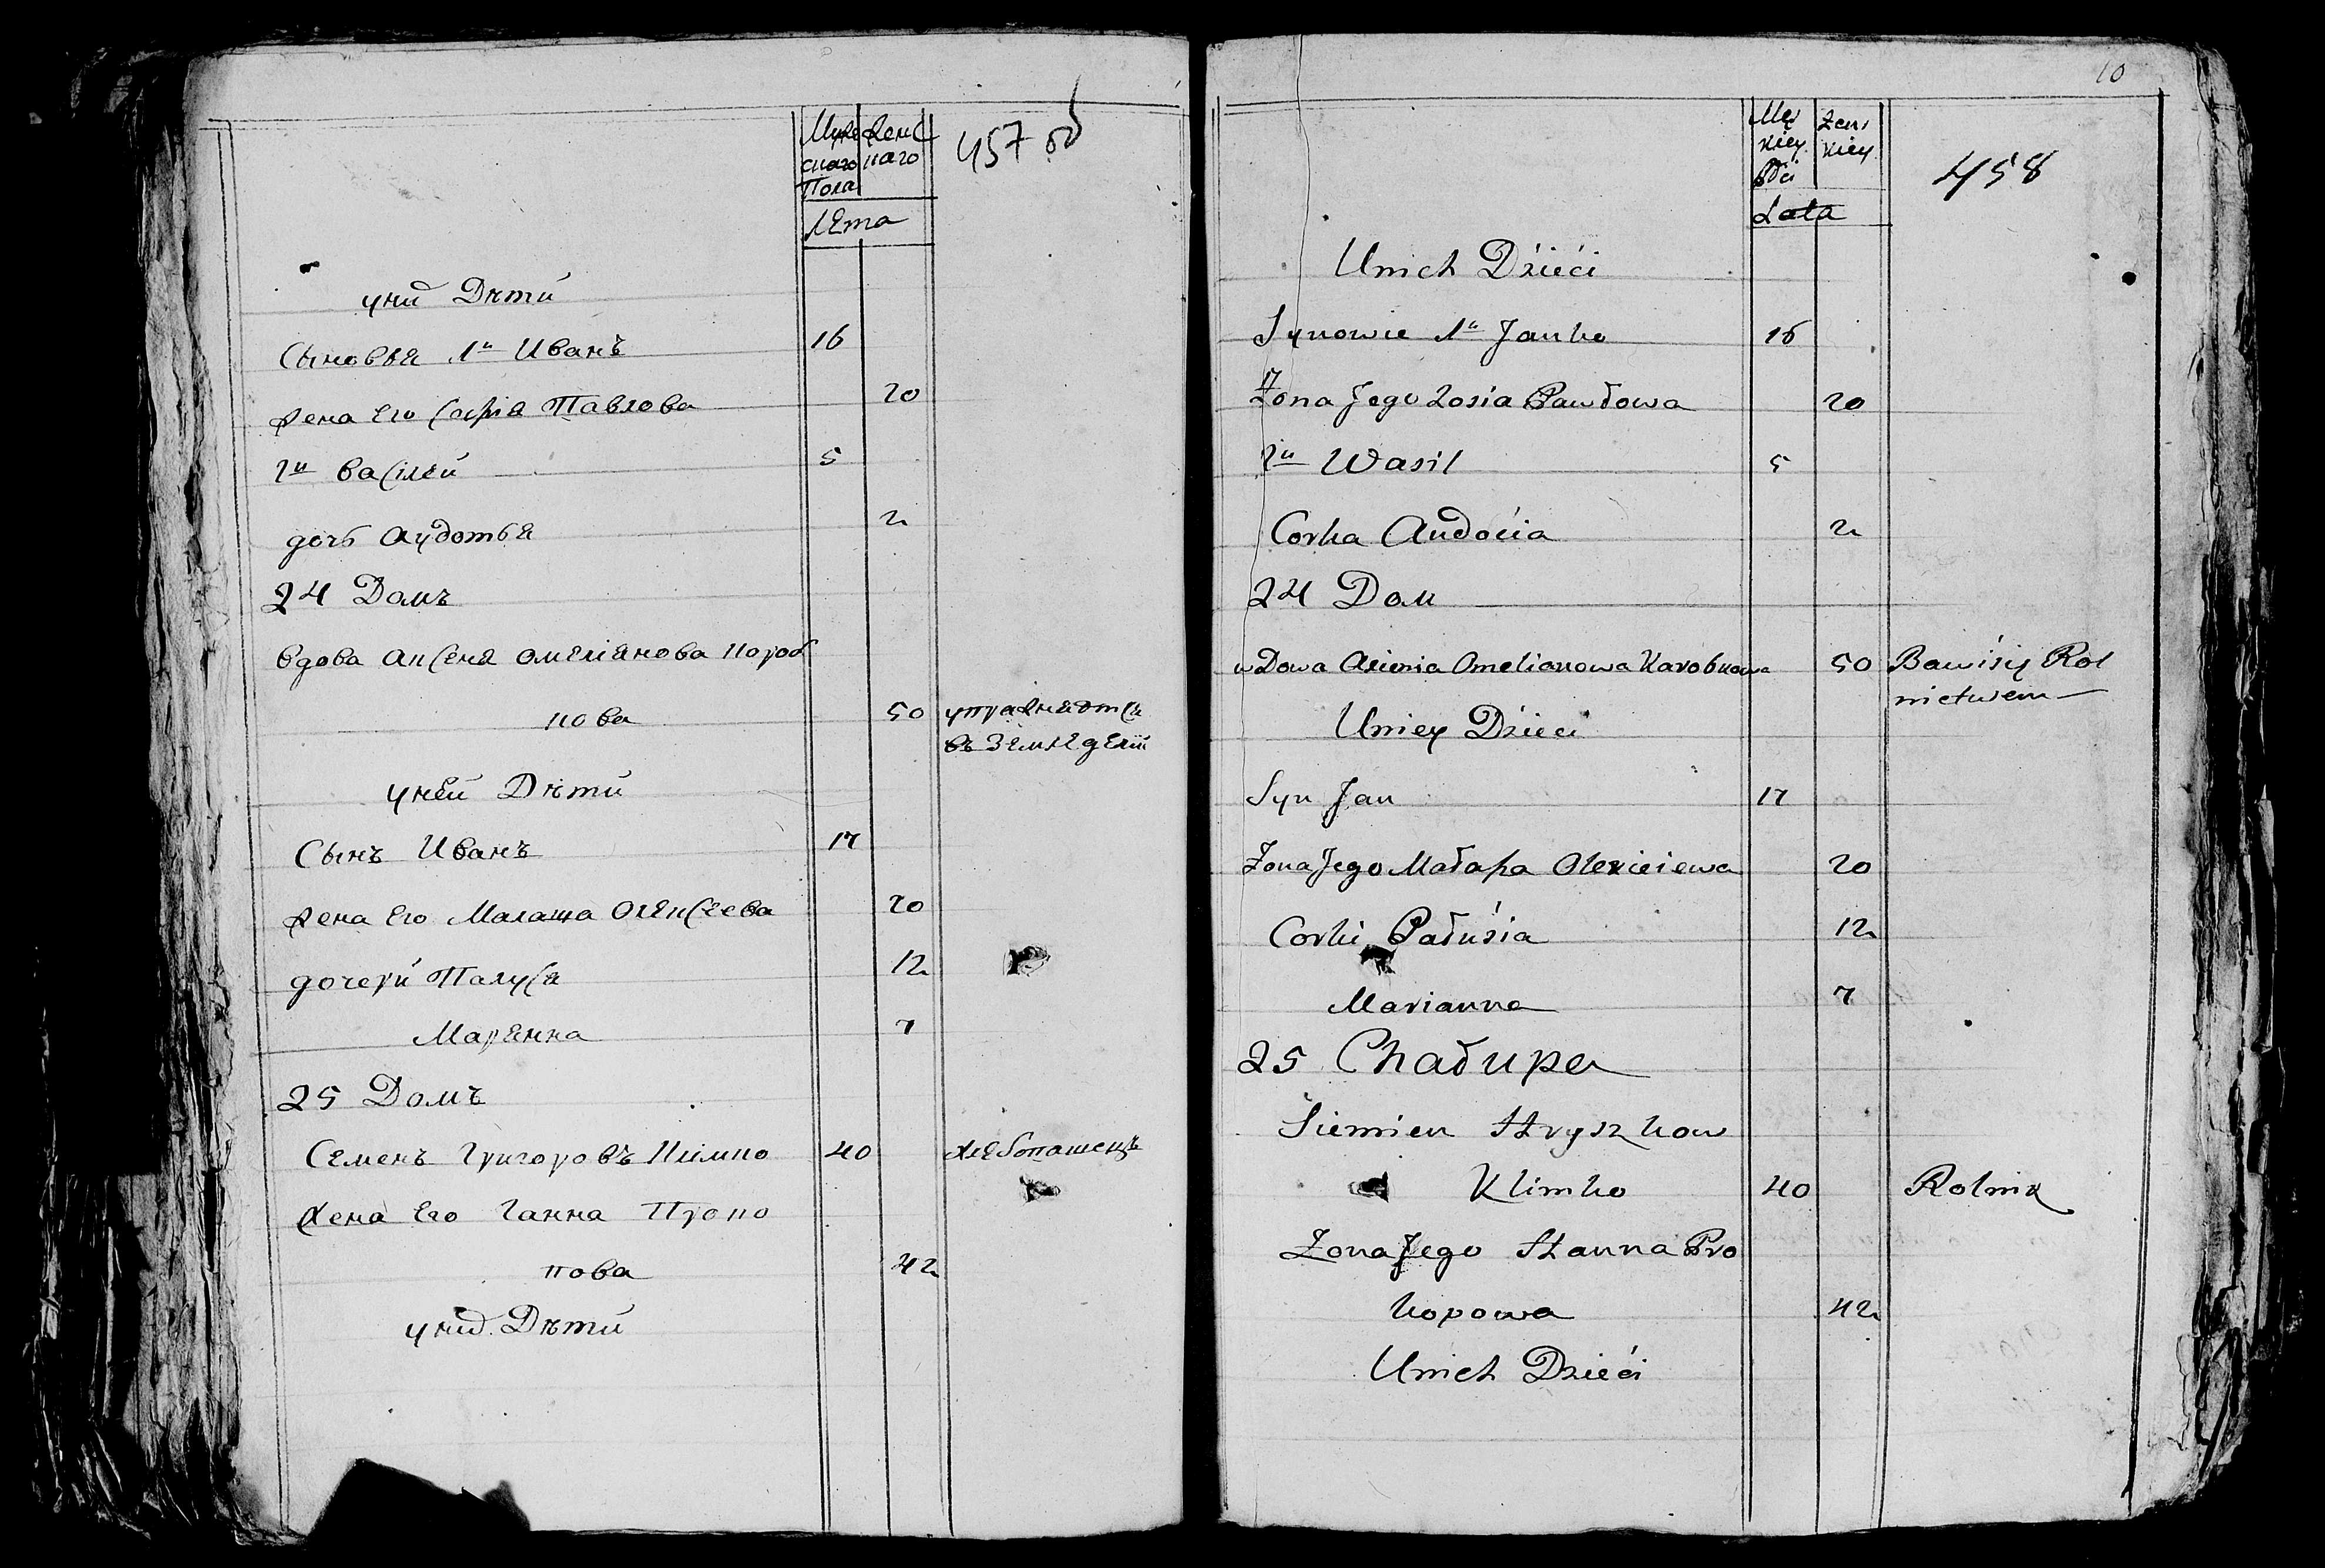 Муже Женс
скаго каго
Пола
457 об
лета
уних Дѣти
Сыновья 1й Иванъ 16
жена его Софія Павлова 20
2й Василей 5
дочь Аудотья 2
24 Домъ
вдова Аксеня Омеліянова Короб
кова 50 упражняется
въ земледеліи
уней Дѣти
Сынъ Иванъ 17
жена его Малаша Олексеева 20
дочери Палуся 12
Маренна 7
25 Домъ
Семенъ Григоровъ Климко 40 хлебопашецъ
Жена его Ганна Проко
пова 42
уних Дѣти
10
Męz Zens
kiey kiey
płci
458
Lata
Unich Dzieći
Synowie 1n Janko 16
Zona Jego Zosia Pawłowa 20
2n Wasil 5
Corka Audocia 2
24 Dom
wDowa Axienia Omelianowa Karobkowa 50 Bawiśię Rol
nictwem
Uniey Dzieci
Syn Jan 17
Zona Jego Małaha Olexieiewa 20
Corki Pałuśia 12
Marianna 7
25 Chałupa
Siemien Hryszkow
Klimko 40 Rolnik
Zona Jego Hanna Pro
kopowa 42
Unich Dzieći